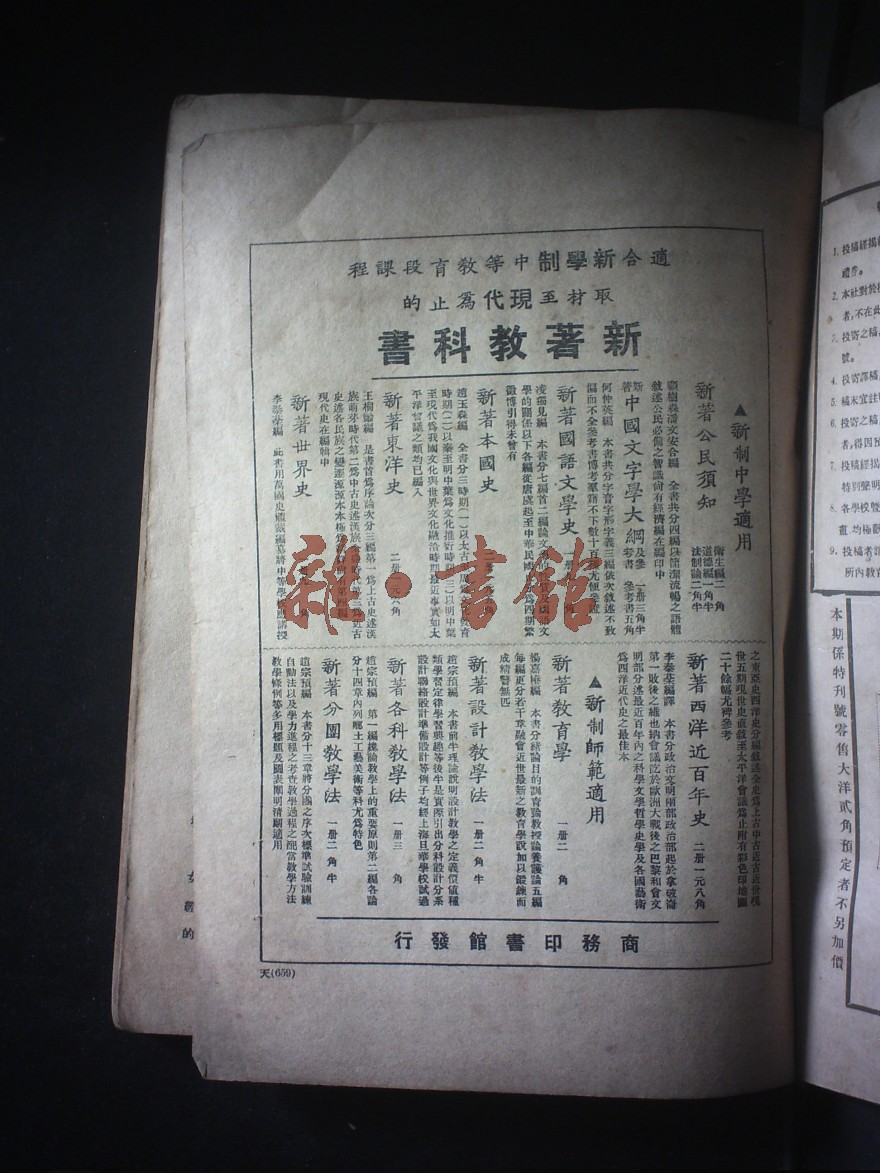 適合新學制中等教育段課程
取材至現代爲止的
新著教科書
▲新制中學適用
新著公民須知
衛生編二角
道德編一角半
法制論二角半
顧樹森潘文安合編 全書共分四編以簡潔流暢之語體
敘述公民必備之智識尚有經濟編在編印中
新著
中國文字學大綱
及參考書
一册三角半
參考書五角
何仲英編 本書共分字音字形字義三編依次敘述不致
偏而不全參考書博考羣籍不下數十百
新著國語文學史
一册
角
凌獨見編 本書分七編首二編論文
學的關係以下各編從唐虞起至中華民國
徵博引得未曾有
新著本國史
趙玉森編 全書分三時期(一)以太古
時期(二)以秦至明中葉爲文化推
時期(三)以明中葉
至現代爲我國文化與世界文化融洽時期最近事實如太
平洋會議之類均已編入
新著東洋史
二册一元六角
王桐齡編 是書首爲序論次分三編第一爲上古史述漢
族萌芽時代第二爲中古史述漢族
第三爲近古
史述各民族之變遷源源本本極
現代史在編輯中
新著世界史
李泰棻編 此書用萬國史體裁編纂將中等學校應講授
之東亞史西洋史分編敘述全史爲上古中古近古近世現
世五期現世史直敘至太平洋會議爲止附有彩色印地圖
二十餘幅尤裨參考
新著西洋近百年史
二册一元八角
李泰棻編譯 本書分政治文明兩部政治部起於拿破崙
第一敗後之維也納會議訖於歐洲大戰後之巴黎和會文
明部分述最近百年內之科學文學哲學史學及各國藝術
爲西洋近代史之最佳本
▲新制師範適用
新著教育學
一册二角
楊嘉椿編 本書分緒論目的論教育論教授論養護論五編
每編更分若干章融會近世最新之教育學說加以鍛鍊而
成精警無匹
新著設計教學法
一册二角半
趙宗預編 本書前半理論說明設計教學之定義價值種
類學習定律學習興趣等後半是實際引出分科設計分系
設計聯絡設計準備設計等例子均經上海旦華學校試過
新著各科教學法
一册三角
趙宗預編 第一編總論教學上的重要原則第二編各論
分十四章內列鄉土工藝美術等科尤爲特色
新著分團教學法
一册二角半
趙宗預編 本書分十三章將分團之序次標準試驗訓練
自動法以及學力進程之考查教學過程之配當教學方法
教學條例等多用標題及圖表闡明清晰適用
商務印書館發行
天(659)
雜·書館
本期係特刊號零售大洋貳角預定者不另加價
1. 投稿經揭
2. 本社對於
者,不在此
3. 投寄之稿
號。
4. 投寄譯稿
5. 稿末宜註
6. 投寄之稿
者,得因預
7. 投稿經揭
特別聲明
8. 各學校暨
9. 投稿者請
所內教育